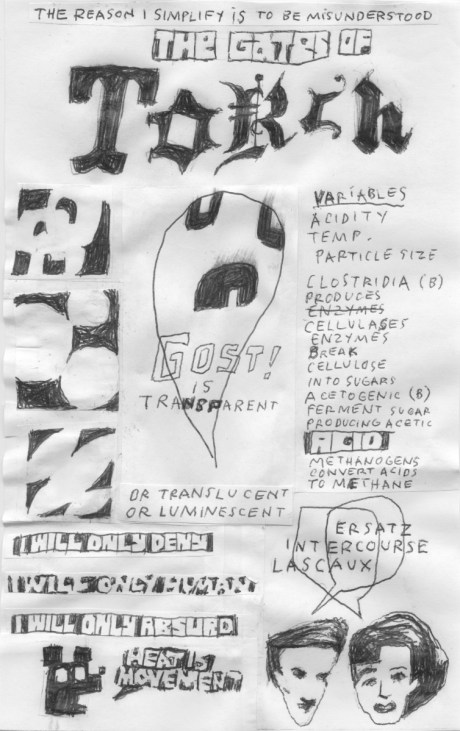 THE REASON I SIMPLIFY IS TO BE MISUNDERSTOOD
THE GATES OF
TORCH
GOST!
IS
TRANSPARENT
OR TRANSLUCENT
OR LUMINESCENT
VARIABLES
ACIDITY
TEMP.
PARTICLE SIZE
CLOSTRIDIA (B)
PRODUCES
ENZYMES
CELLULASES
ENZYMES
BREAK
CELLULOSE
INTO SUGARS
ACETOGENIC (B)
FERMENT SUGAR
PRODUCING ACETIC
ACID
METHANOGENS
CONVERT ACIDS
TO METHANE
I WILL ONLY DENY
I WILL ONLY HUMAN
I WILL ONLY ABSURD
HEAT IS
MOVEMENT
ERSATZ
INTERCOURSE
LASCAUX